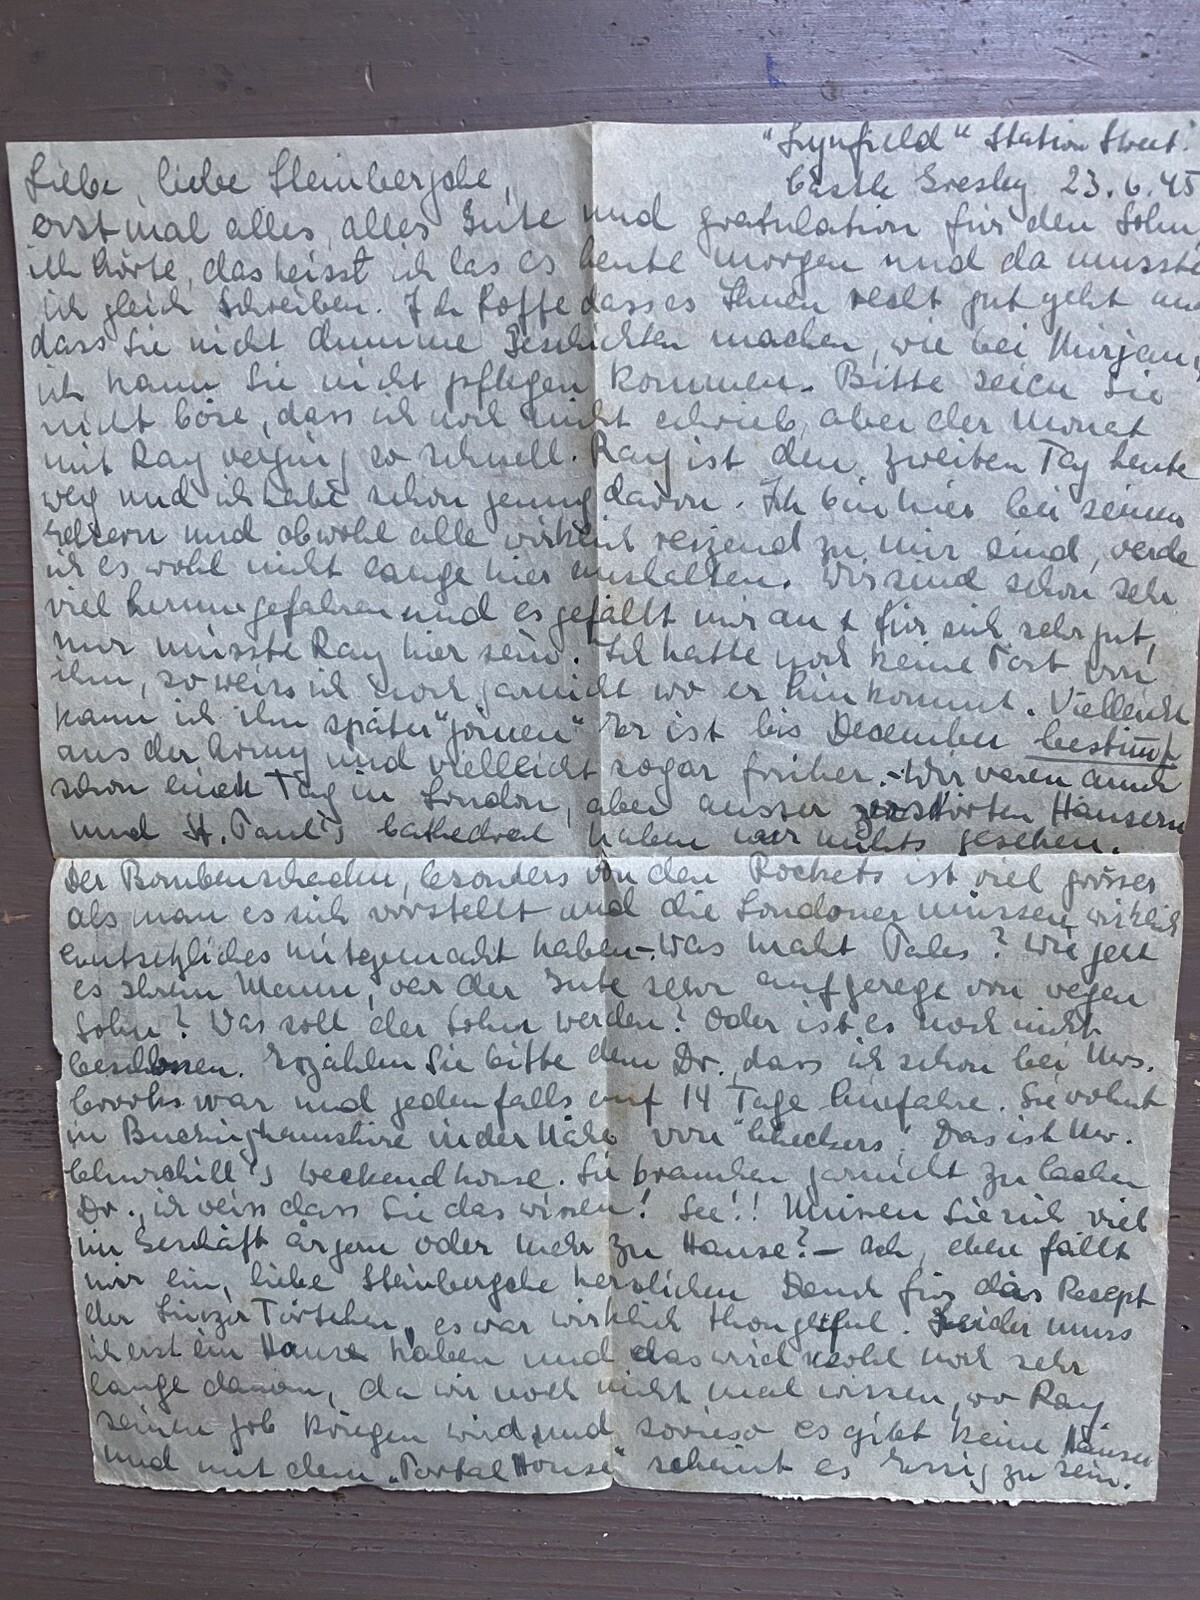 "Lynfield" Station Street.
Castle Gresley 23.6.45
Liebe, liebe Steinbergsche,
erst mal alles, alles Gute und gratulation für den Sohn
ich hörte, das heisst ich las es heute morgen und da musste
ich gleich schreiben. Ich hoffe dass es Ihnen recht gut geht und
dass Sie nicht dumme Geschichten machen, wie bei Mirjam,
ich kann Sie nicht pflegen kommen. Bitte seien Sie
nicht böse, dass ich noch nicht schrieb, aber der Monat
mit Ray verging so schnell. Ray ist den zweiten Tag heute
weg und ich habe schon genug davon. Ich bin hier bei seinen
Eltern und obwohl alle wirklich reizend zu mir sind, werde
ich es wohl nicht lange hier aushalten. Wir sind schon sehr
viel herumgefahren und es gefällt mir an + für sich sehr gut,
nur müsste Ray hier sein. Ich hatte noch keine Post von
ihm, so weiss ich noch garnicht wo er hinkommt. Vielleicht
kann ich ihm später "joinen" Er ist bis Decembeu bestimmt
aus der Army und vielleicht sogar früher. - Wir waren auch
schon einen Tag in London, aber ausser zerstörten Häusern
und St. Paul's Cathedral haben wir nichts gesehen.
Der Bombenschaden, besonders von den Rockets ist viel grösser
als man es sich vorstellt und die Londoner müssen wirklich
entsetzliches mitgemacht haben. - Was macht Pales? Wie geht
es Ihrem Mann, war der Gute sehr aufgeregt von wegen
Sohn? Was soll der Sohn werden? Oder ist es noch nicht
beschlossen. Erzählen Sie bitte dem Dr., dass ich schon bei Mrs.
Brooks war und jedenfalls auf 14 Tage hinfahre. Sie wohnt
in Buckinghamshire in der Nähe von "Checkers". Das ist Mr.
Churchill's weekendhouse. Sie brauchen garnicht zu lachen
Dr., ich weiss dass Sie das wissen! See!! Müssen Sie sich viel
im Geschäft ärgern oder mehr zu Hause? - Ach, eben fällt
mir ein, liebe Steinbergsche herzlichen Dank für das Recept
der Linzer Törtchen, es war wirklich thoughtful. Leider muss
ich erst ein Haus haben und das wird wohl noch sehr
lange dauern, da wir noch nicht mal wissen, wo Ray
seinen job kriegen wird und sowieso es gibt keine Häuser
und mit dem "Portal House" scheint es Essig zu sein.